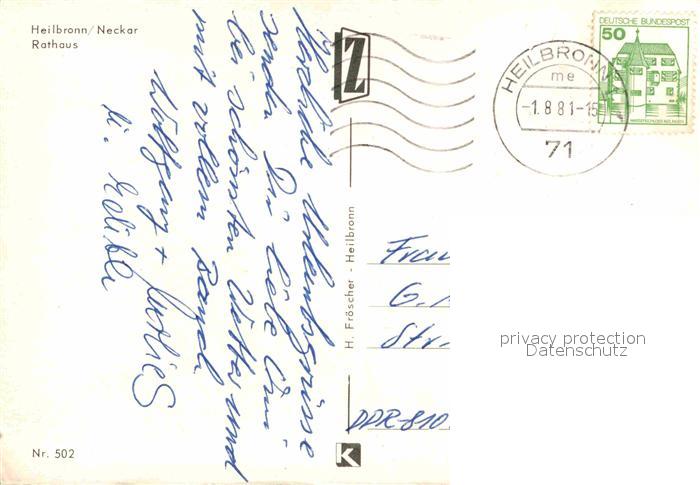 Heilbronn/Neckar
Rathaus
Herzliche Urlaubsgrüsse
senden Dir liebe Omi
bei schönsten Wetter und
mit vollem Bauch
Wolfgang +
Nr. 502
H. Fröscher - Heilbronn
Z
K
HEILBRONN
me
-1.8.81-15
71
DEUTSCHE BUNDESPOST
50
Frau
G.
Str.
DDR-810
privacy protection
Datenschutz